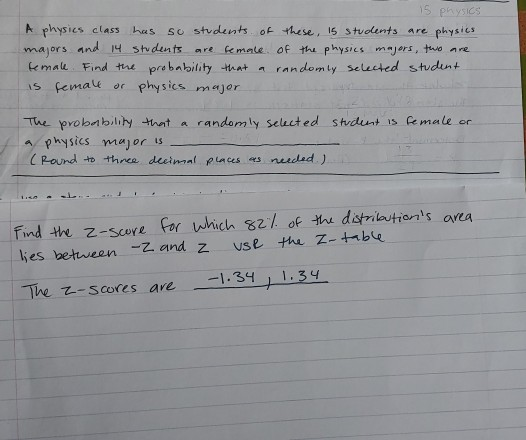 15 physics
A physics class has 50 students of these, 15 students are physics
majors and 14 students are female. of the physics majors, two are
female. Find the probability that a randomly selected student
is female or physics major
The probability that a randomly selected student is female or
a physics major is
(Round to three decimal places as needed.)
Find the z-score for which 82% of the distribution's area
lies between -z and z use the z-table
The z-scores are -1.34, 1.34